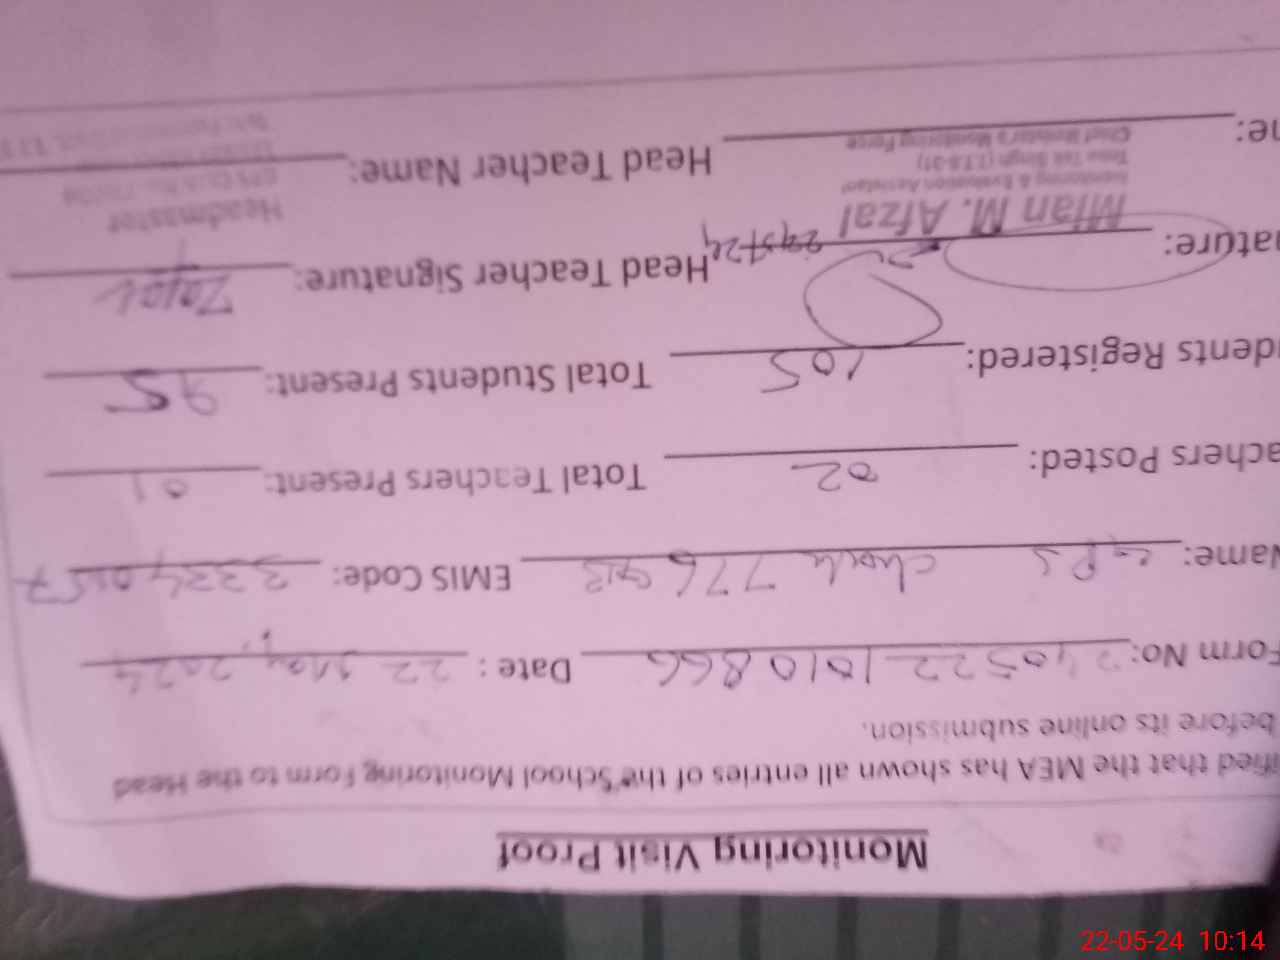 Monitoring Visit Proof
ified that the MEA has shown all entries of the School Monitoring Form to the Head
before its online submission.
Form No: 2405221010866 Date: 22 May, 2024
Name: GPS Chack 776 GB EMIS Code: 33240157
achers Posted: 02 Total Teachers Present: 01
dents Registered: 105 Total Students Present: 95
ature: Head Teacher Signature:
Mian M. Afzal
Monitoring & Evaluation Assistant
Toba Tek Singh (T.T.S-31)
Chief Minister's Monitoring Force
Headmaster
ne: Head Teacher Name:
22-05-24 10:14